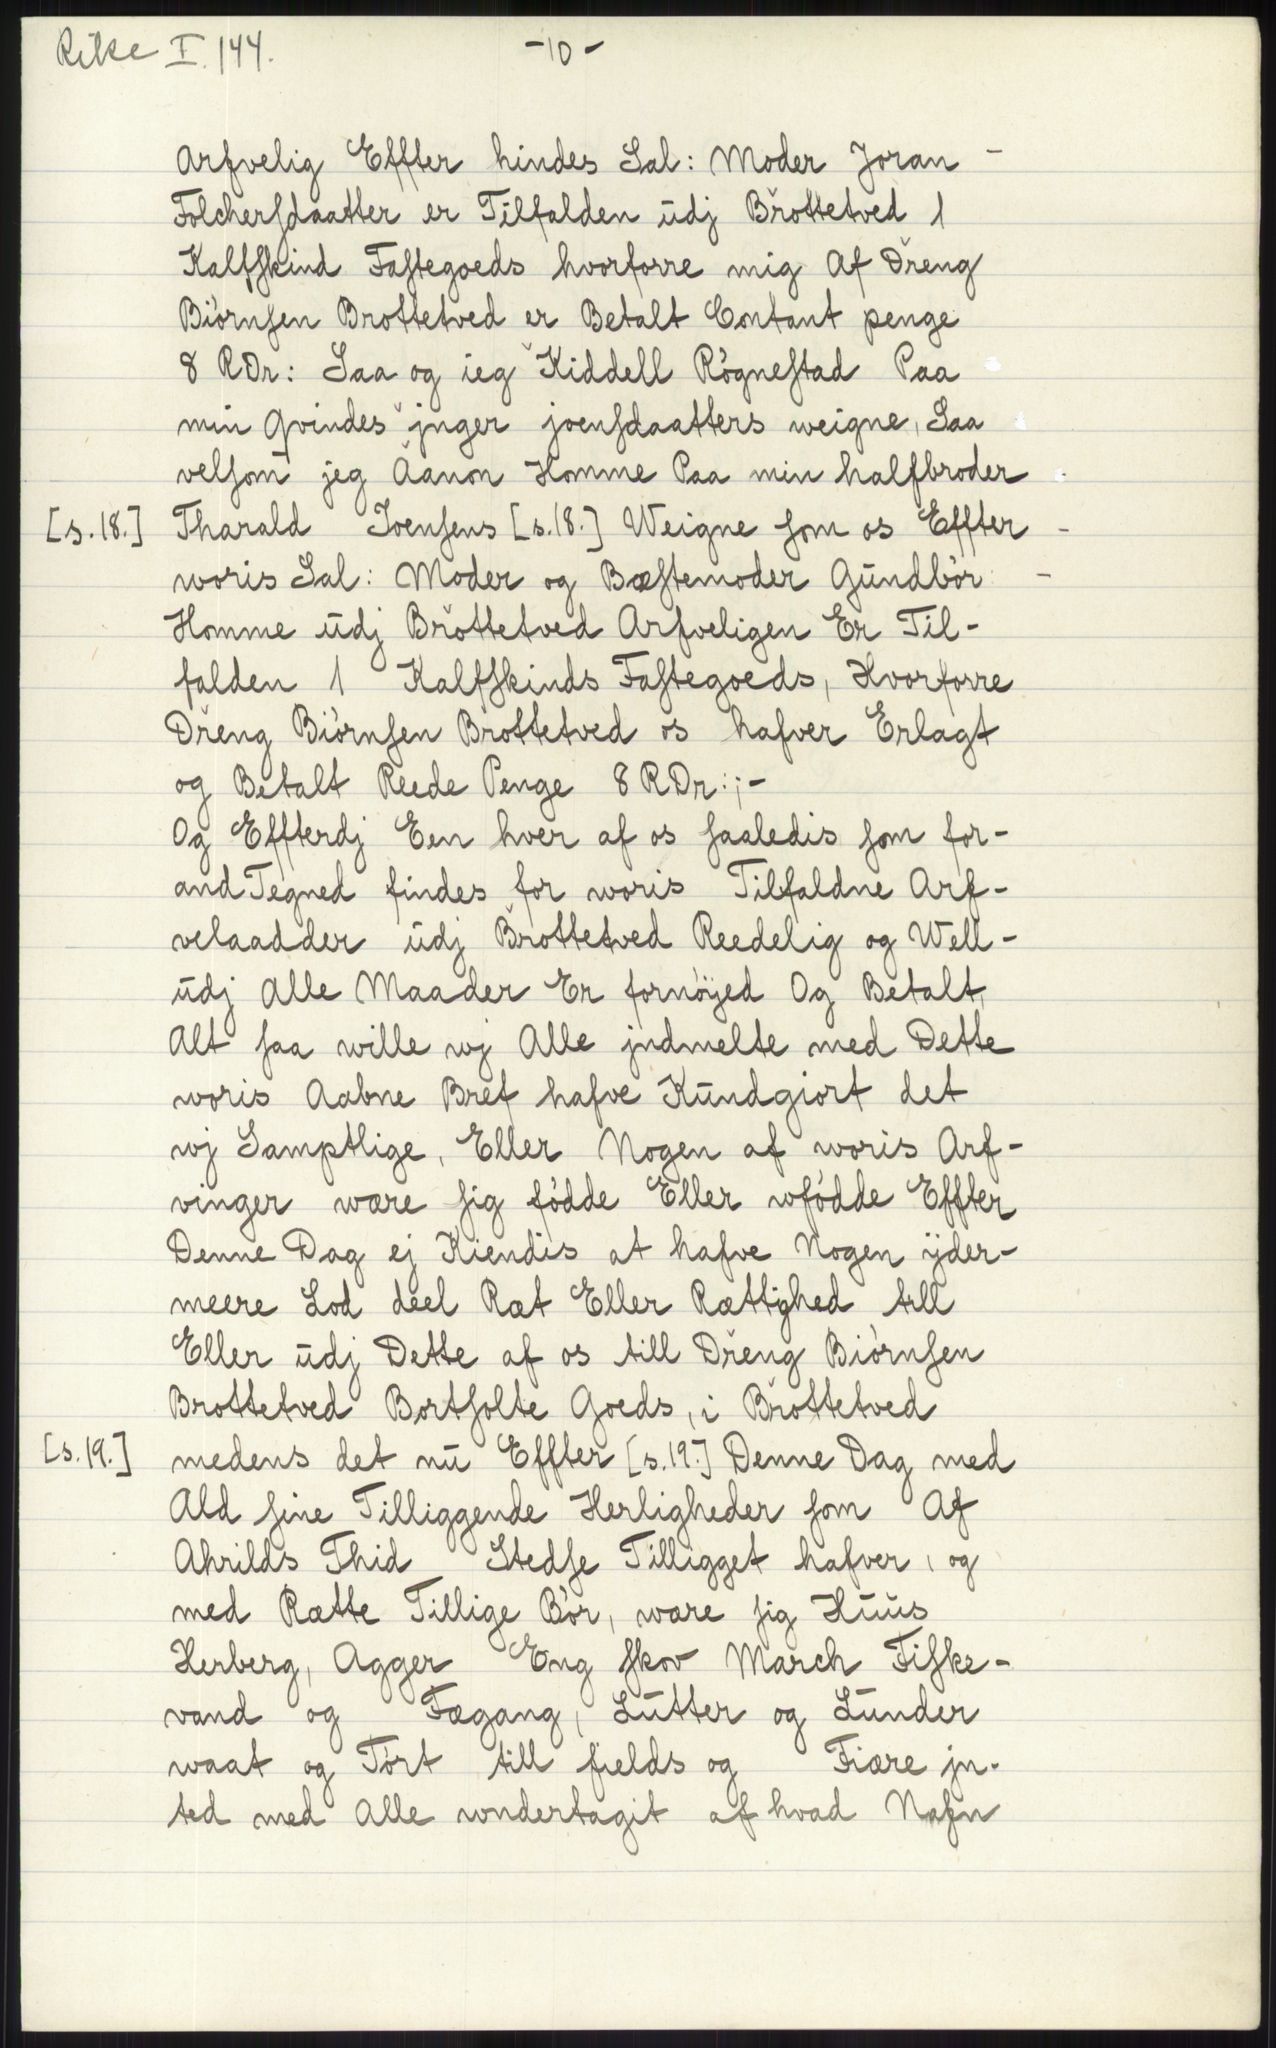 Rike I. 144.
-10-
Arfvelig Effter hindes Sal: Moder Joran -
Folchersdaatter er Tilfalden udj Brottetved 1
Kalfskind Fastegoeds hvorforre mig Af Dreng
Biörnsen Brottetved er Betalt Contant penge
8 RDr: Saa og ieg Kiddell Rögnestad Paa
min Qvindes jnger joensdaatters weigne, Saa
velsom jeg Aanon Homme Paa min halfbroder
[s.18.] Tharald Joensens [s.18.] Weigne som os Effter -
woris Sal: Moder og Bæstemoder Gundbör -
Homme udj Brottetved Arfveligen Er Til-
falden 1 Kalfskinds Fastegoeds, Hvorforre
Dreng Biörnsen Brottetved os hafver Erlagt
og Betalt Reede Penge 8 RDr:;-
Og Effterdj Een hver af os saaledis som for-
and Tegned findes for woris Tilfaldne Arf-
velaadder udj Brottetved Reedelig og Well-
udj Alle Maader Er fornöyed Og Betalt,
Alt saa wille wj Alle jndmelte med Dette
woris Aabne Bref hafve Kundgiort det
wj Samptlige, Eller Nogen af woris Arf-
vinger wære sig födde Eller wfödde Effter
Denne Dag ej Kiendis at hafve Nogen ÿder-
meere Lod deel Ræt Eller Rættighed till
Eller udj Dette af os till Dreng Biörnsen
Brottetved Bortsolte Goeds, i Brottetved
[s.19.] medens det nu Effter [s.19.] Denne Dag med
Ald sine Tilliggende Herligheder som Af
Ahrilds Thid Stedse Tilligget hafver, og
med Rætte Tillige Bör, wære sig Huus
Herberg, Agger Eng skov March Fiske-
vand og Fægang, Lutter og Lunder
waat og Tört till fields og Fiære jn-
ted med Alle wndertagit af hvad Nafn